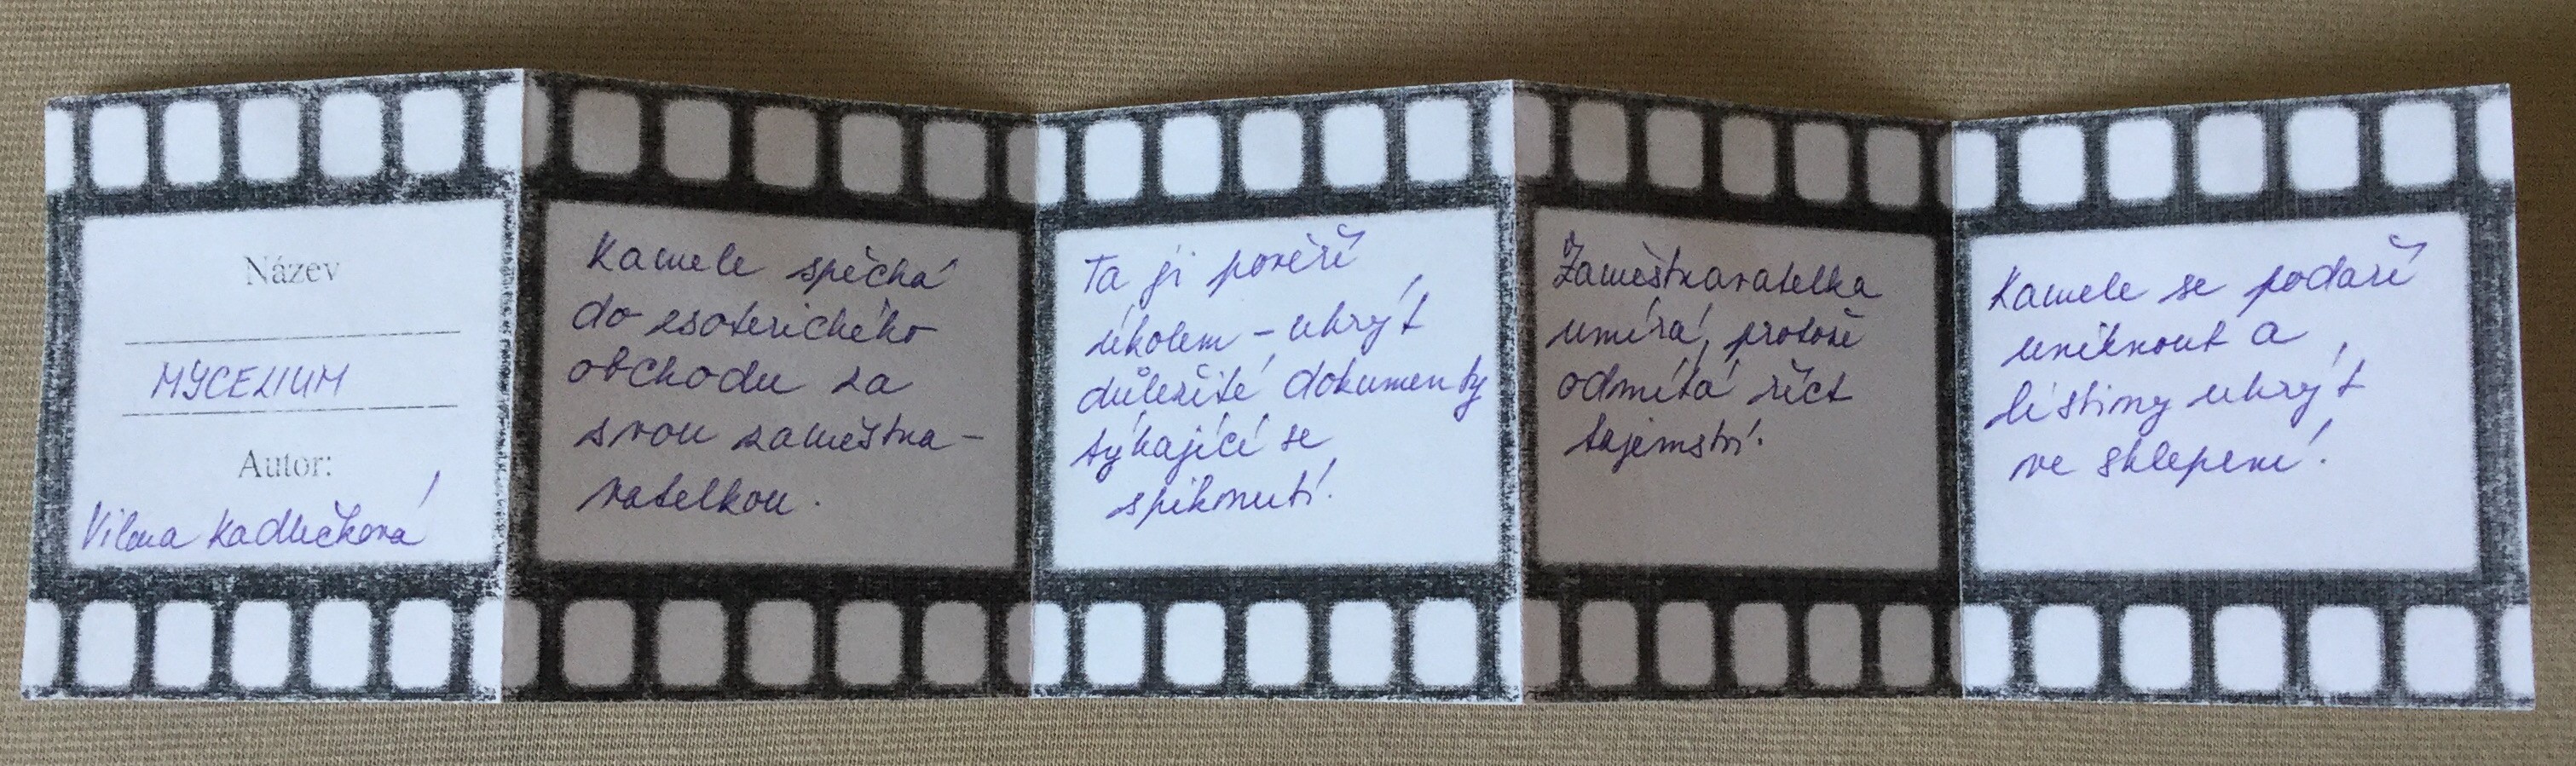 Název
MYCELIUM
Autor:
Vilma Kadlečková
Kamele spěchá
do esoterického
obchodu za
svou zaměstna-
vatelkou.
Ta ji pověří
úkolem - ukrýt
důležité dokumenty
týkající se
spiknutí.
Zaměstnavatelka
umírá, protože
odmítá říct
tajemství.
Kamele se podaří
uniknout a
listiny ukrýt
ve sklepení.